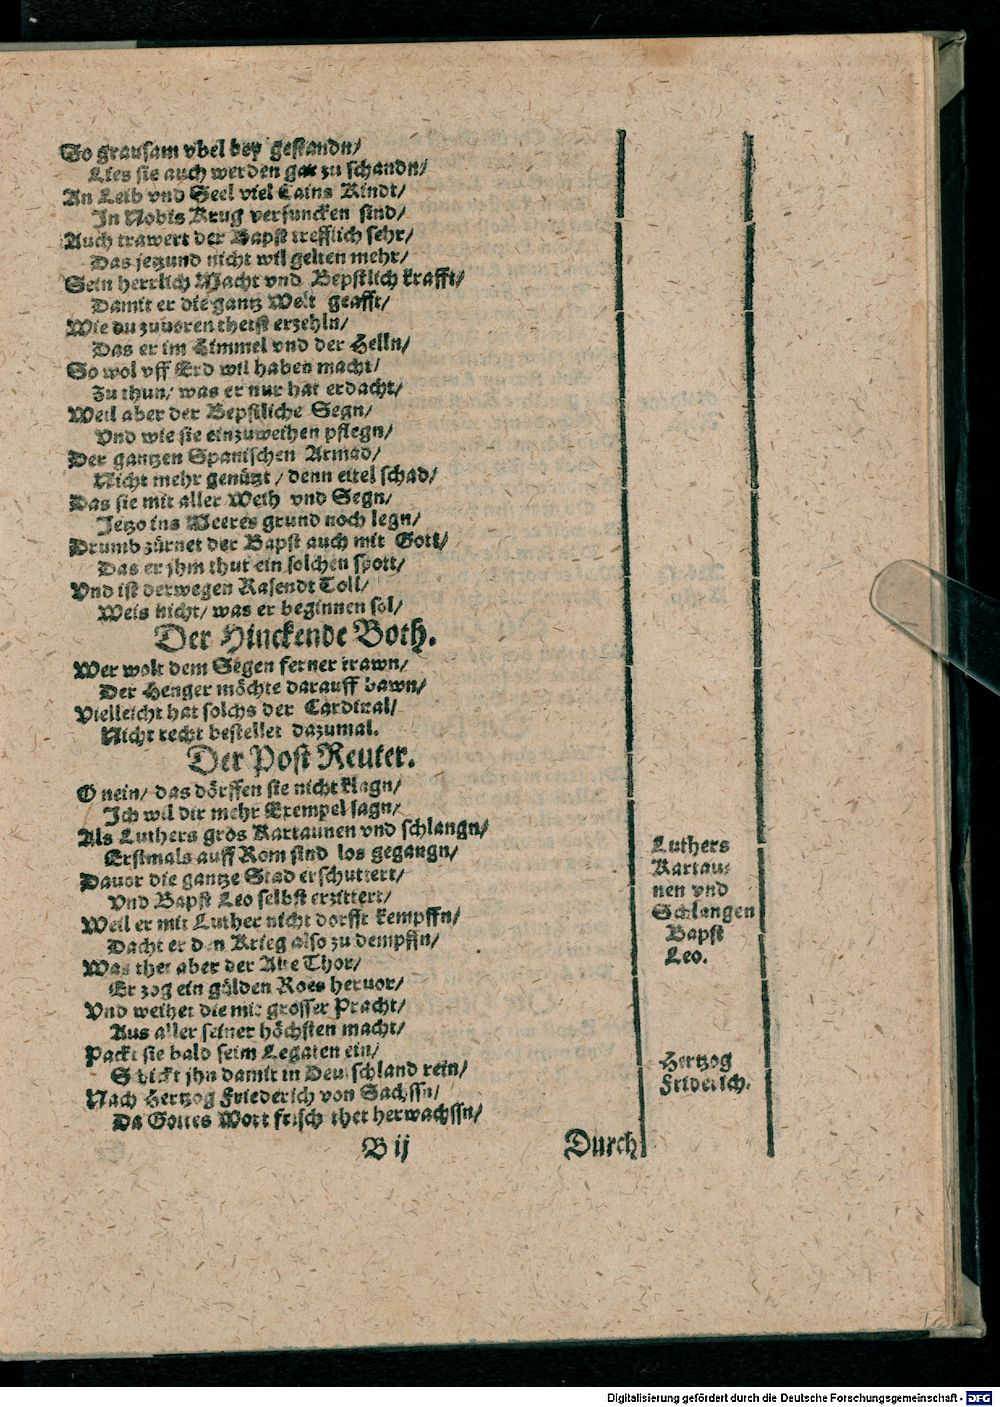 So grausam vbel bey gestandn/
Lies sie auch werden gar zu schandn/
An Leib vnd Seel viel Cains Kindt/
In Nobis Krug versuncken sind/
Auch trawert der Bapst trefflich sehr/
Das jetzund nicht wil gelten mehr/
Sein herrlich Macht vnd Bepstlich krafft/
Damit er die gantz Welt geafft/
Wie du zuuoren thetst erzehln/
Das er im Himmel vnd der Helln/
So wol vff Erd wil haben macht/
Zu thun/ was er nur hat erdacht/
Weil aber der Bepstliche Segn/
Vnd wie sie einzuweihen pflegn/
Der gantzen Spanischen Armad/
Nicht mehr genützt / denn eitel schad/
Das sie mit aller Weih vnd Segn/
Jetzo ins Meeres grund noch legn/
Drumb zürnet der Bapst auch mit Gott/
Das er jhm thut ein solchen spott/
Vnd ist derwegen Rasendt Toll/
Weis nicht/ was er beginnen sol/
Der Hinckende Both.
Wer wolt dem Segen ferner trawn/
Der Henger möchte darauff bawn/
Vielleicht hat solchs der Cardinal/
Nicht recht bestellet dazumal.
Der Post Reuter.
O nein/ das dörffen sie nicht klagn/
Ich wil dir mehr Exempel sagn/
Als Luthers gros Kartaunen vnd schlangn/
Erstmals auff Rom sind los gegangn/
Dauor die gantze Stad erschuttert/
Vnd Bapst Leo selbst erzittert/
Weil er mit Luther nicht dorfft kempffn/
Dacht er den Krieg also zu dempffn/
Was thet aber der Alte Thor/
Er zog ein gülden Roes heruor/
Vnd weihet die mit grosser Pracht/
Aus aller seiner höchsten macht/
Packt sie bald seim Legaten ein/
Schickt jhn damit in Deutschland rein/
Nach Hertzog Friederich von Sachssn/
Da Gottes Wort frisch thet herwachssn/
B ij
Durch
Luthers
Kartau-
nen vnd
Schlangen
Bapst
Leo.
Hertzog
Friderich.
Digitalisierung gefördert durch die Deutsche Forschungsgemeinschaft - DFG